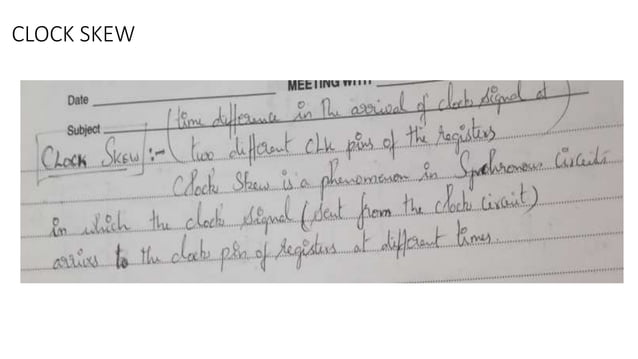 CLOCK SKEW
MEETING WITH
Date
Subject
(time difference in the arrival of clock signal at
Clock Skew :- two different CLK pins of the registers)
Clock Skew is a phenomenon in Synchronous Circuits
in which the clock signal (sent from the clock circuit)
arrives to the clock pin of registers at different times.